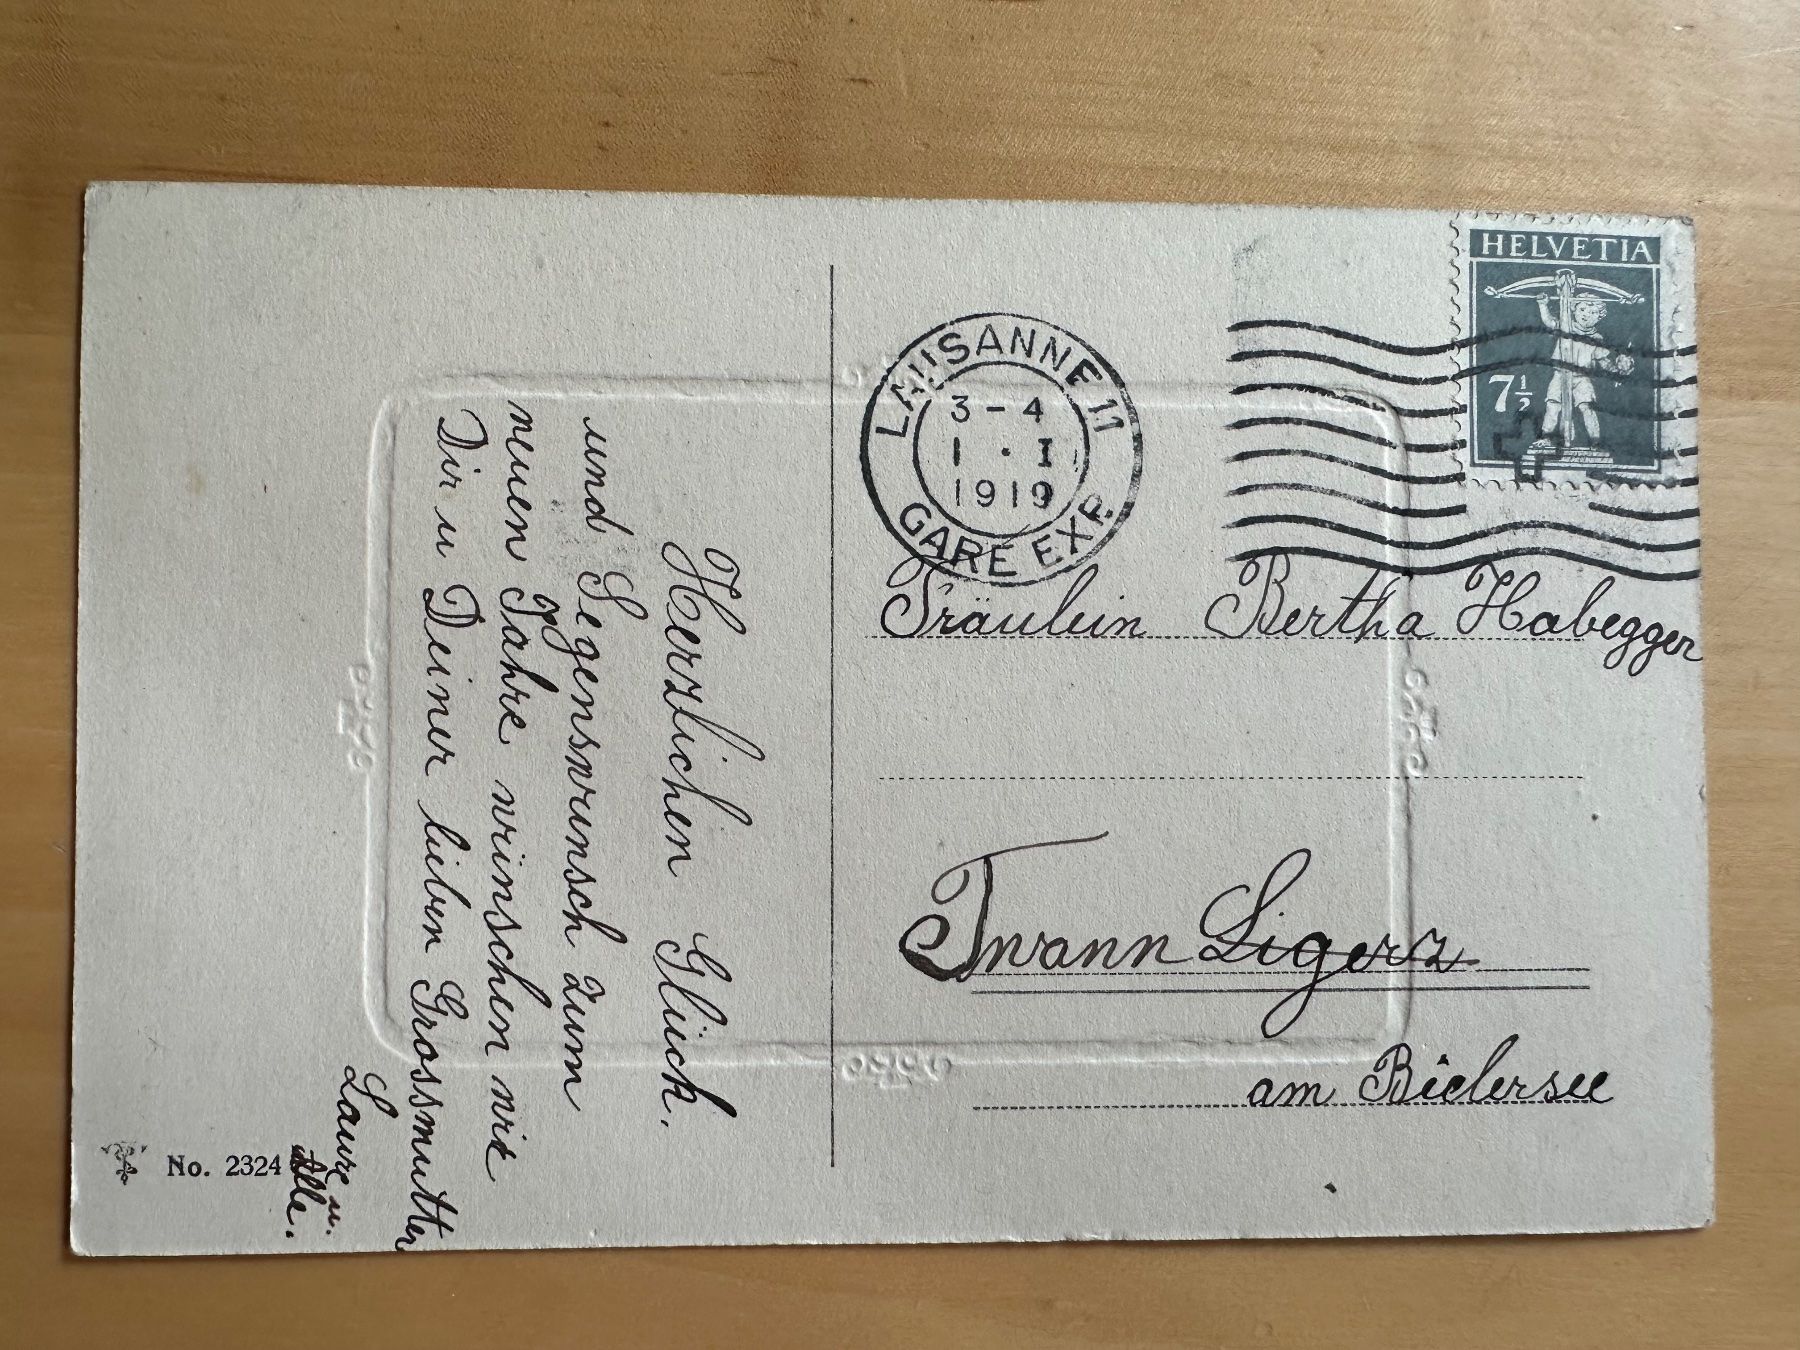 Herzlichen Glück.
und Segenswunsch zum
neuen Jahre wünschen wir
Dir u Deiner lieben Grossmutter
Laure u.
Alle.
No. 2324
HELVETIA
7½
LAUSANNE 11
3 - 4
1 · I
1919
GARE EXP.
Fräulein Bertha Habegger
Twann Ligerz
am Bielersee